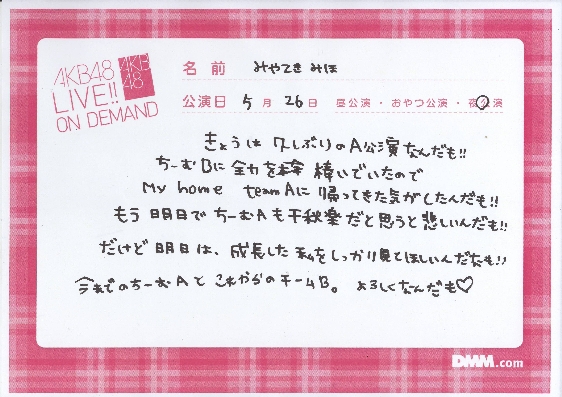 AKB48
LIVE!!
ON DEMAND
AKB
48
名前 みやざき みほ
公演日 5月26日 昼公演・おやつ公演・夜公演
きょうは久しぶりのA公演なんだも!!
ちーむBに全力を捧 棒いでいたので
My home teamAに帰ってきた気がしたんだも!!
もう明日でちーむAも千秋楽だと思うと悲しいんだも!!
だけど明日は、成長した私をしっかり見てほしいんだも!!
今までのちーむAとこれからのチームB。よろしくなんだも♡
DMM.com